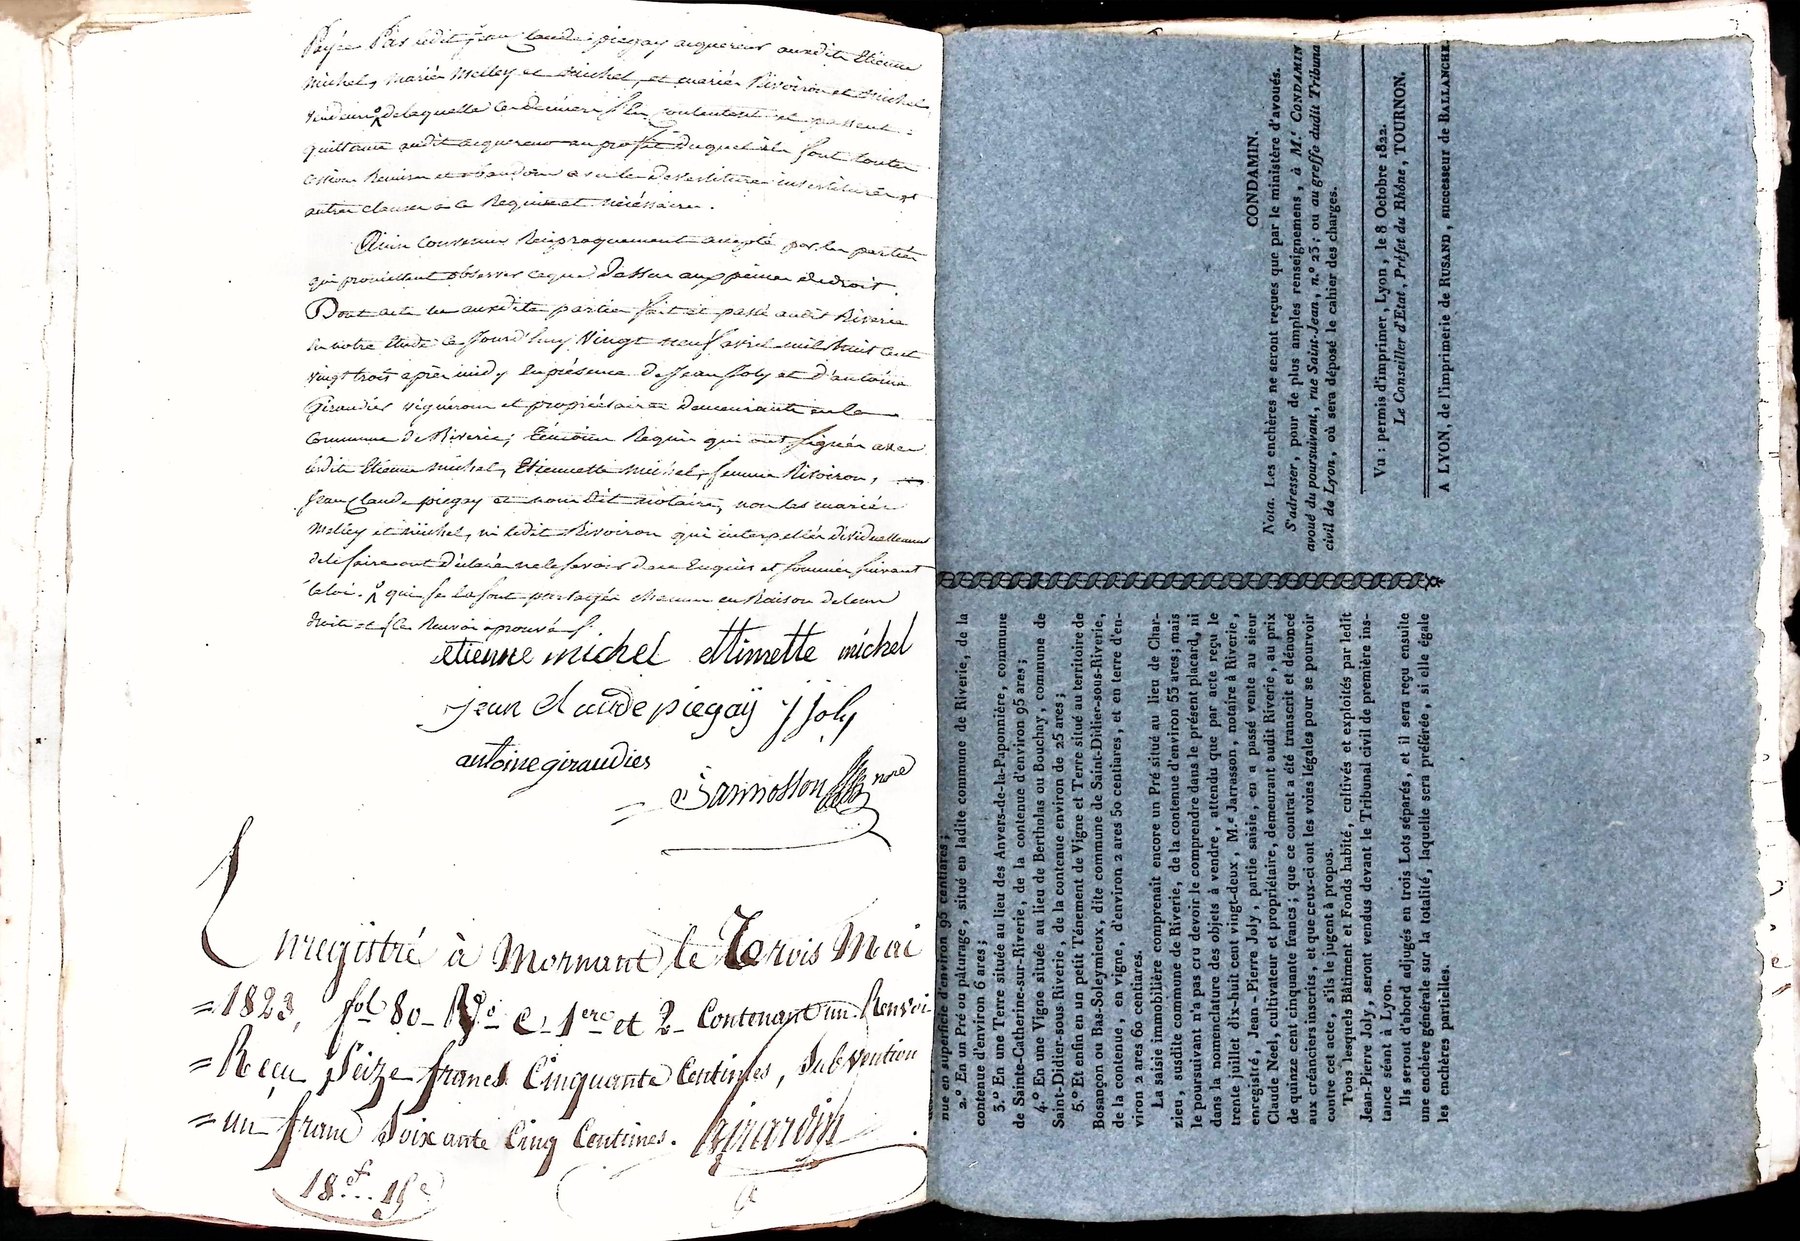 Payée Par ledit jean Claude piegay acquereur auxdits Etienne
michel, mariés Melley et michel, et mariés Rivoiron et michel
vendeurs de laquelle ces derniers s'en contentent et passent
quittance audit acquereur au profit duquel ils font toute
cession Remise et abandon avec les devestiture investiture et
autres clauses à ce Requises et nécessaires.
Ainsi convenu Réciproquement accepté par les parties
qui promettent observer ce que dessus aux peines de droit.
Dont acte lu auxdites parties fait et passé audit Riverie
en notre Etude ce Jourd'huy vingt neuf avril mil huit cent
vingt trois après midy En présence de Jean Joly et d'antoine
Giraudier vigneron et propriétaire demeurants en la
Commune de Riverie, témoins Requis qui ont signés avec
lesdits Etienne michel, Etiennette michel, femme Rivoiron,
Jean Claude piegay et nous dit notaire, non les mariés
Melley et michel, ni ledit Rivoiron qui interpellés
de le faire ont déclaré ne le savoir de ce Enquis et sommés suivant
la loi. qui se la sont partagée chacun en Raison de leurs
droits et le Renvoi aprouvé
etienne michel ettinette michel
jean claude piegaÿ J Joly
antoine giraudies
Jannosson nore
Enregistré à Mornant le Trois Mai
= 1823, fol 80 Ro C 1ere et 2 Contenant un Renvoi
= Reçu Seize francs Cinquante Centimes, Subvention
= un franc Soixante Cinq Centimes.
18f.. 15c
nue en superficie d'environ 95 centiares ;
2.º En un Pré ou pâturage, situé en ladite commune de Riverie, de la
contenue d'environ 6 ares ;
3.º En une Terre située au lieu des Anvers-de-la-Paponnière, commune
de Sainte-Catherine-sur-Riverie, de la contenue d'environ 95 ares ;
4.º En une Vigne située au lieu de Bertholas ou Bouchay, commune de
Saint-Didier-sous-Riverie, de la contenue environ de 25 ares ;
5.º Et enfin en un petit Ténement de Vigne et Terre situé au territoire de
Bosançon ou Bas-Soleymieux, dite commune de Saint-Didier-sous-Riverie,
de la contenue, en vigne, d'environ 2 ares 50 centiares, et en terre d'en-
viron 2 ares 60 centiares.
La saisie immobilière comprenait encore un Pré situé au lieu de Char-
zieu, susdite commune de Riverie, de la contenue d'environ 55 ares ; mais
le poursuivant n'a pas cru devoir le comprendre dans le présent placard, ni
dans la nomenclature des objets à vendre, attendu que par acte reçu le
trente juillet dix-huit cent vingt-deux, M.e Jarrasson, notaire à Riverie,
enregistré, Jean-Pierre Joly, partie saisie, en a passé vente au sieur
Claude Neel, cultivateur et propriétaire, demeurant audit Riverie, au prix
de quinze cent cinquante francs ; que ce contrat a été transcrit et dénoncé
aux créanciers inscrits, et que ceux-ci ont les voies légales pour se pourvoir
contre cet acte, s'ils le jugent à propos.
Tous lesquels Bâtiment et Fonds habité, cultivés et exploités par ledit
Jean-Pierre Joly, seront vendus devant le Tribunal civil de première ins-
tance séant à Lyon.
Ils seront d'abord adjugés en trois Lots séparés, et il sera reçu ensuite
une enchère générale sur la totalité, laquelle sera préférée, si elle égale
les enchères partielles.
CONDAMIN.
Nota. Les enchères ne seront reçues que par le ministère d'avoués.
S'adresser, pour de plus amples renseignemens, à M.e CONDAMIN
avoué du poursuivant, rue Saint-Jean, n.º 23 ; ou au greffe dudit Tribuna
civil de Lyon, où sera déposé le cahier des charges.
Vu : permis d'imprimer, Lyon, le 8 Octobre 1822.
Le Conseiller d'Etat, Préfet du Rhône, TOURNON.
A LYON, de l'imprimerie de RUSAND, successeur de BALLANCHE